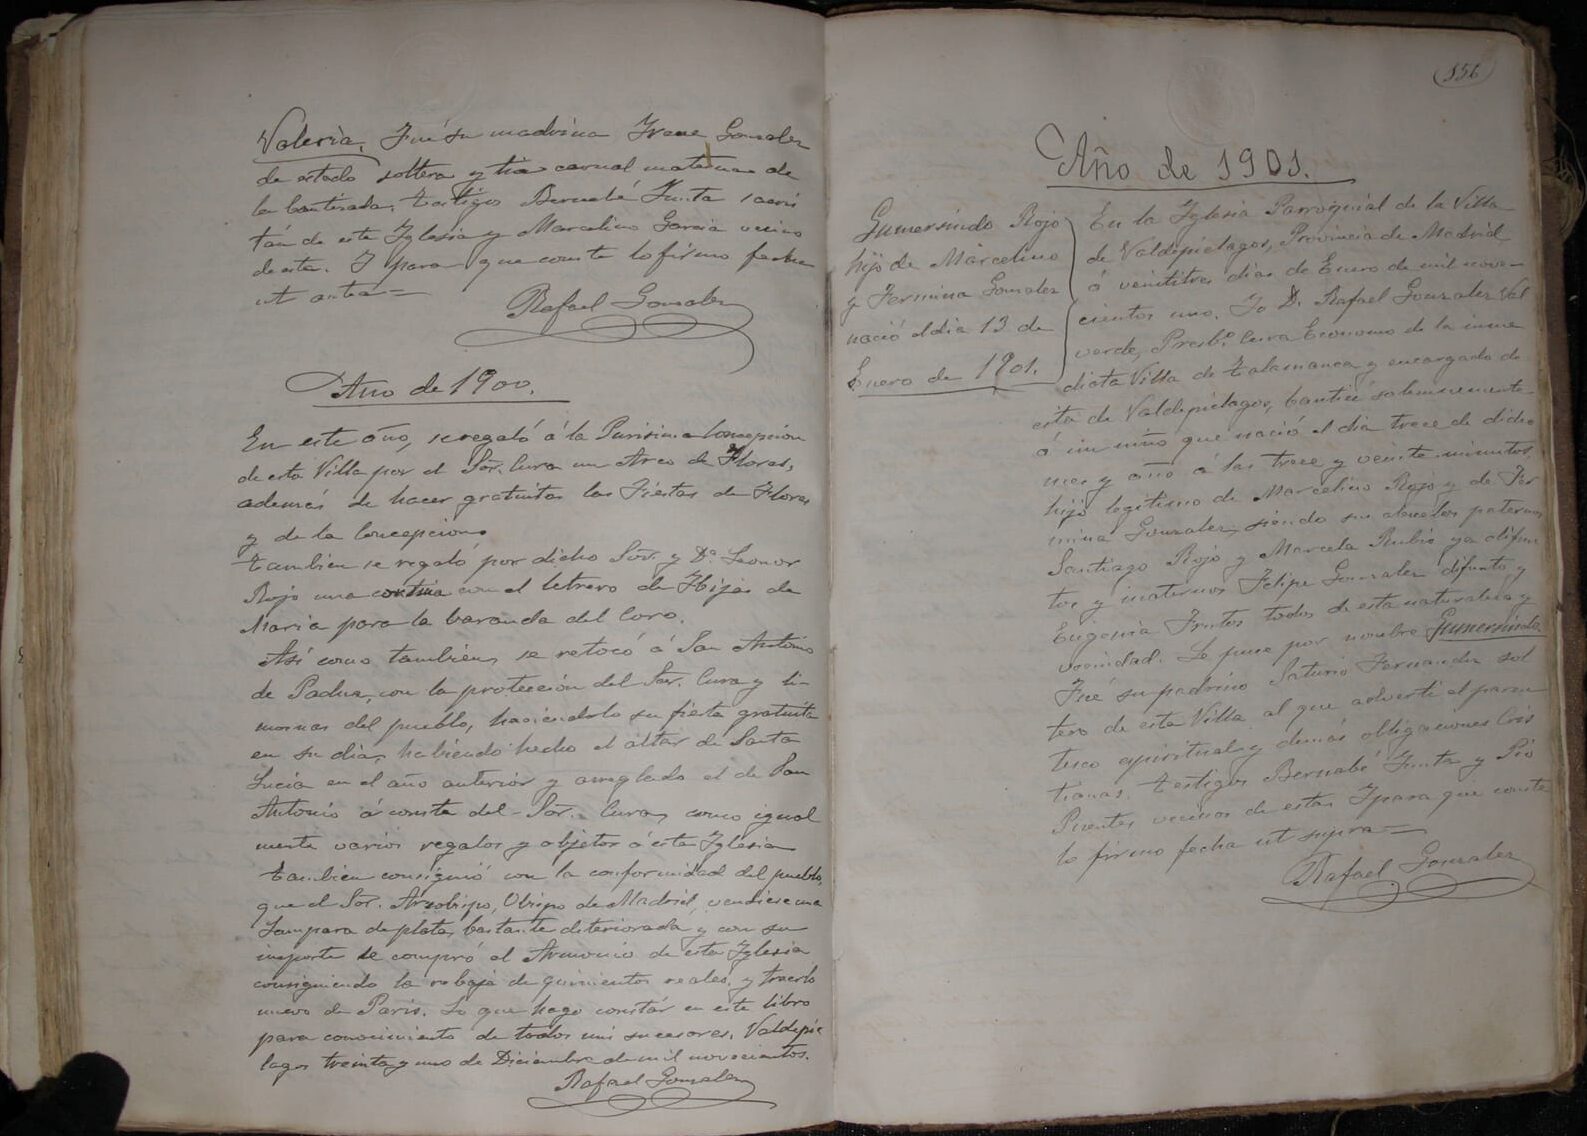 Valeria. Fué su madrina Irene Gonzalez
de estado soltera y tia carnal materna de
la bautizada. Testigos Bernabé Junta sacris
tán de esta Iglesia y Marcelino Garcia vecino
de esta. Y para que conste lo firmo fecha
ut antea =
Rafael Gonzalez
Año de 1900.
En este año, se regaló á la Purisima Concepcion
de esta Villa por el Sor. Cura un Arco de Flores,
además de hacer gratuitas las Fiestas de Flores
y de la Concepcion
tambien se regaló por dicho Sor. y Dª Leonor
Rojo una cortina con el letrero de Hijas de
Maria para la baranda del Coro.
Asi como tambien, se retocó á San Antonio
de Padua, con la protección del Sor. Cura y li-
mosnas del pueblo, haciendolo su fiesta gratuita
en su dia, habiendo hecho el altar de Santa
Lucia en el año anterior y arreglado el de San
Antonio á costa del Sor. Cura, como igual
mente varios regalos y objetos á esta Iglesia
tambien consiguió con la conformidad del pueblo,
que el Sor. Arzobispo, Obispo de Madrid, vendiese una
Lampara de plata, bastante deteriorada y con su
importe se compró el Armonio de esta Iglesia
consiguiendo la rebaja de quinientos reales, y traerlo
nuevo de Paris. Lo que hago constár en este libro
para conocimiento de todos mis sucesores. Valdepié
lagos treinta y uno de Diciembre de mil novecientos.
Rafael Gonzalez
156
Año de 1901.
Gumersindo Rojo
hijo de Marcelino
y Fermina Gonzalez
nació el dia 13 de
Enero de 1901.
En la Iglesia Parroquial de la Villa
de Valdepiélagos, Provincia de Madrid,
á veintitres dias de Enero de mil nove-
cientos uno. Yo D. Rafael Gonzalez Val
verde, Presb.º Cura Economo de la inme
diata Villa de Talamanca y encargado de
esta de Valdepiélagos, bauticé solemnemente
á un niño que nació el dia trece de dicho
mes y año á las trece y veinte minutos,
hijo legitimo de Marcelino Rojo y de Fer
mina Gonzalez, siendo sus abuelos paternos
Santiago Rojo y Marcela Rubio ya difun
tos, y maternos Felipe Gonzalez difunto, y
Eugenia Frutos todos de esta naturaleza y
vecindad. Le puse por nombre Gumersindo
Fué su padrino Saturio Fernandez sol
tero de esta Villa al que adverti el paren
tesco espiritual y demás obligaciones Cris
tianas. Testigos Bernabé Junta y Pio
Puentes vecinos de esta. Y para que conste
lo firmo fecha ut supra =
Rafael Gonzalez